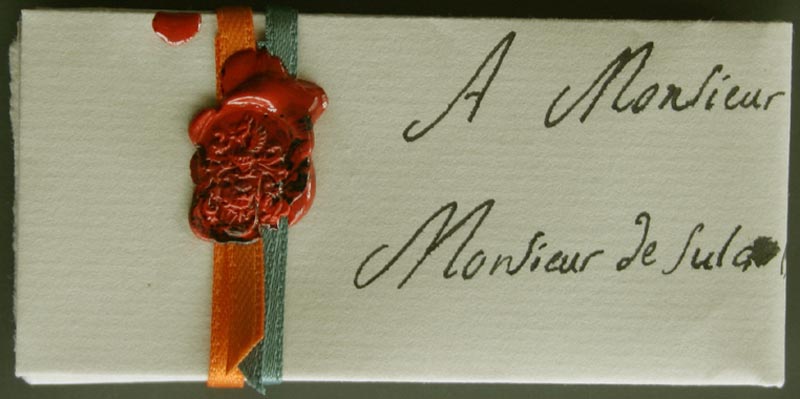 A Monsieur
Monsieur de